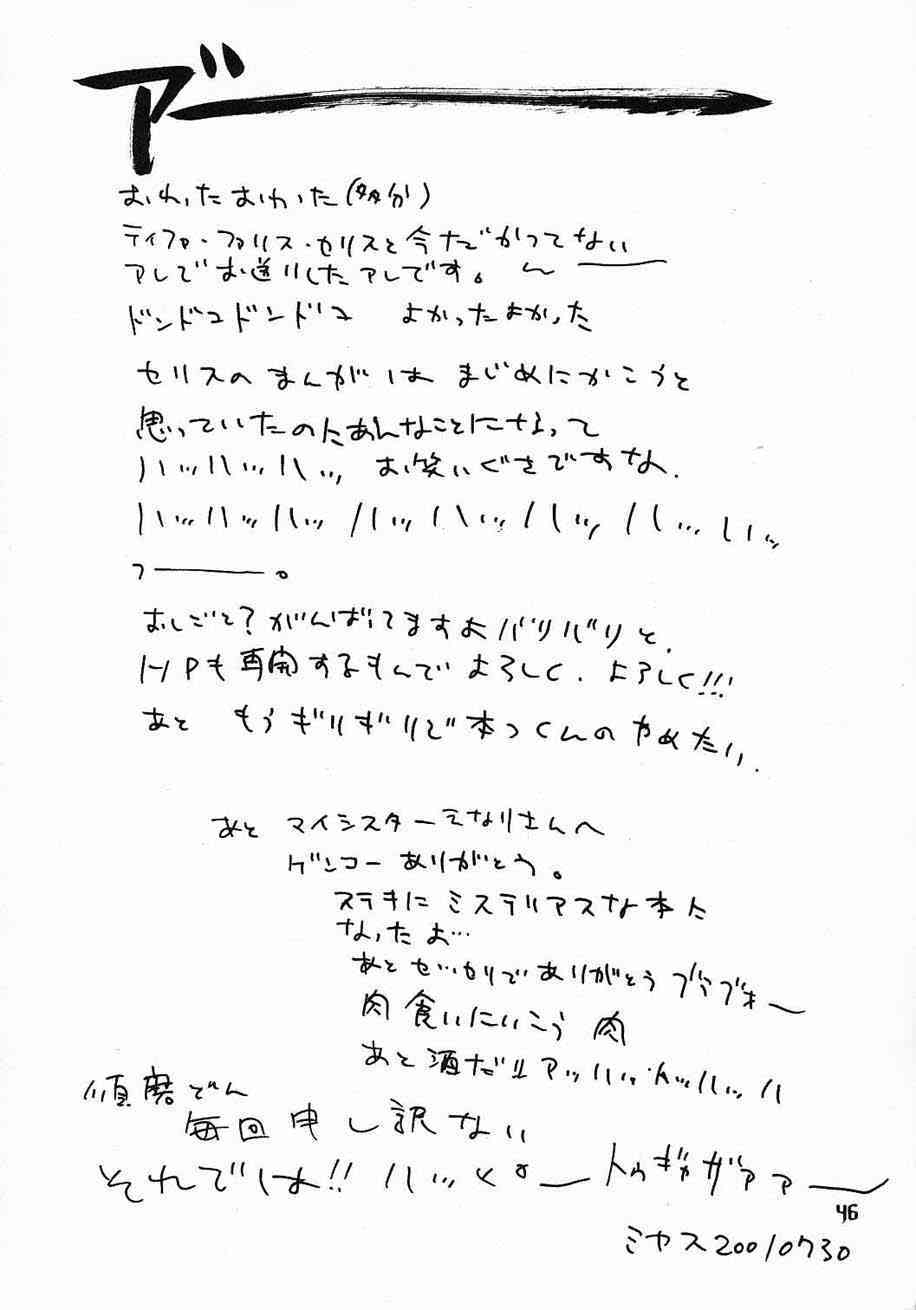 ア゛ー
おわったおわった(多分)
ティファ・ファリス・セリスと今だかつてない
アレでお送りしたアレです。
ドンドコドンドコ よかったよかった
セリスのまんがは まじめにかこうと
思っていたのにあんなことになって
ハッハッハッ お笑いぐさですな.
ハッハッハッハッハッハッハッハッ
フ――。
おしごと?がんばってますよバリバリと.
HPも再開するもんでよろしく.よろしく!!!
あと もうギリギリで本つくんのやめたい.
あと マイシスターえなりさんへ
ゲンコーありがとう。
ステキにミステリアスな本に
なったよ…
あと でありがとう
肉食いにいこう 肉
あと酒だ!! アッハッハッハッハ
毎回申し訳ない
それでは!!
46
ミヤス20010730